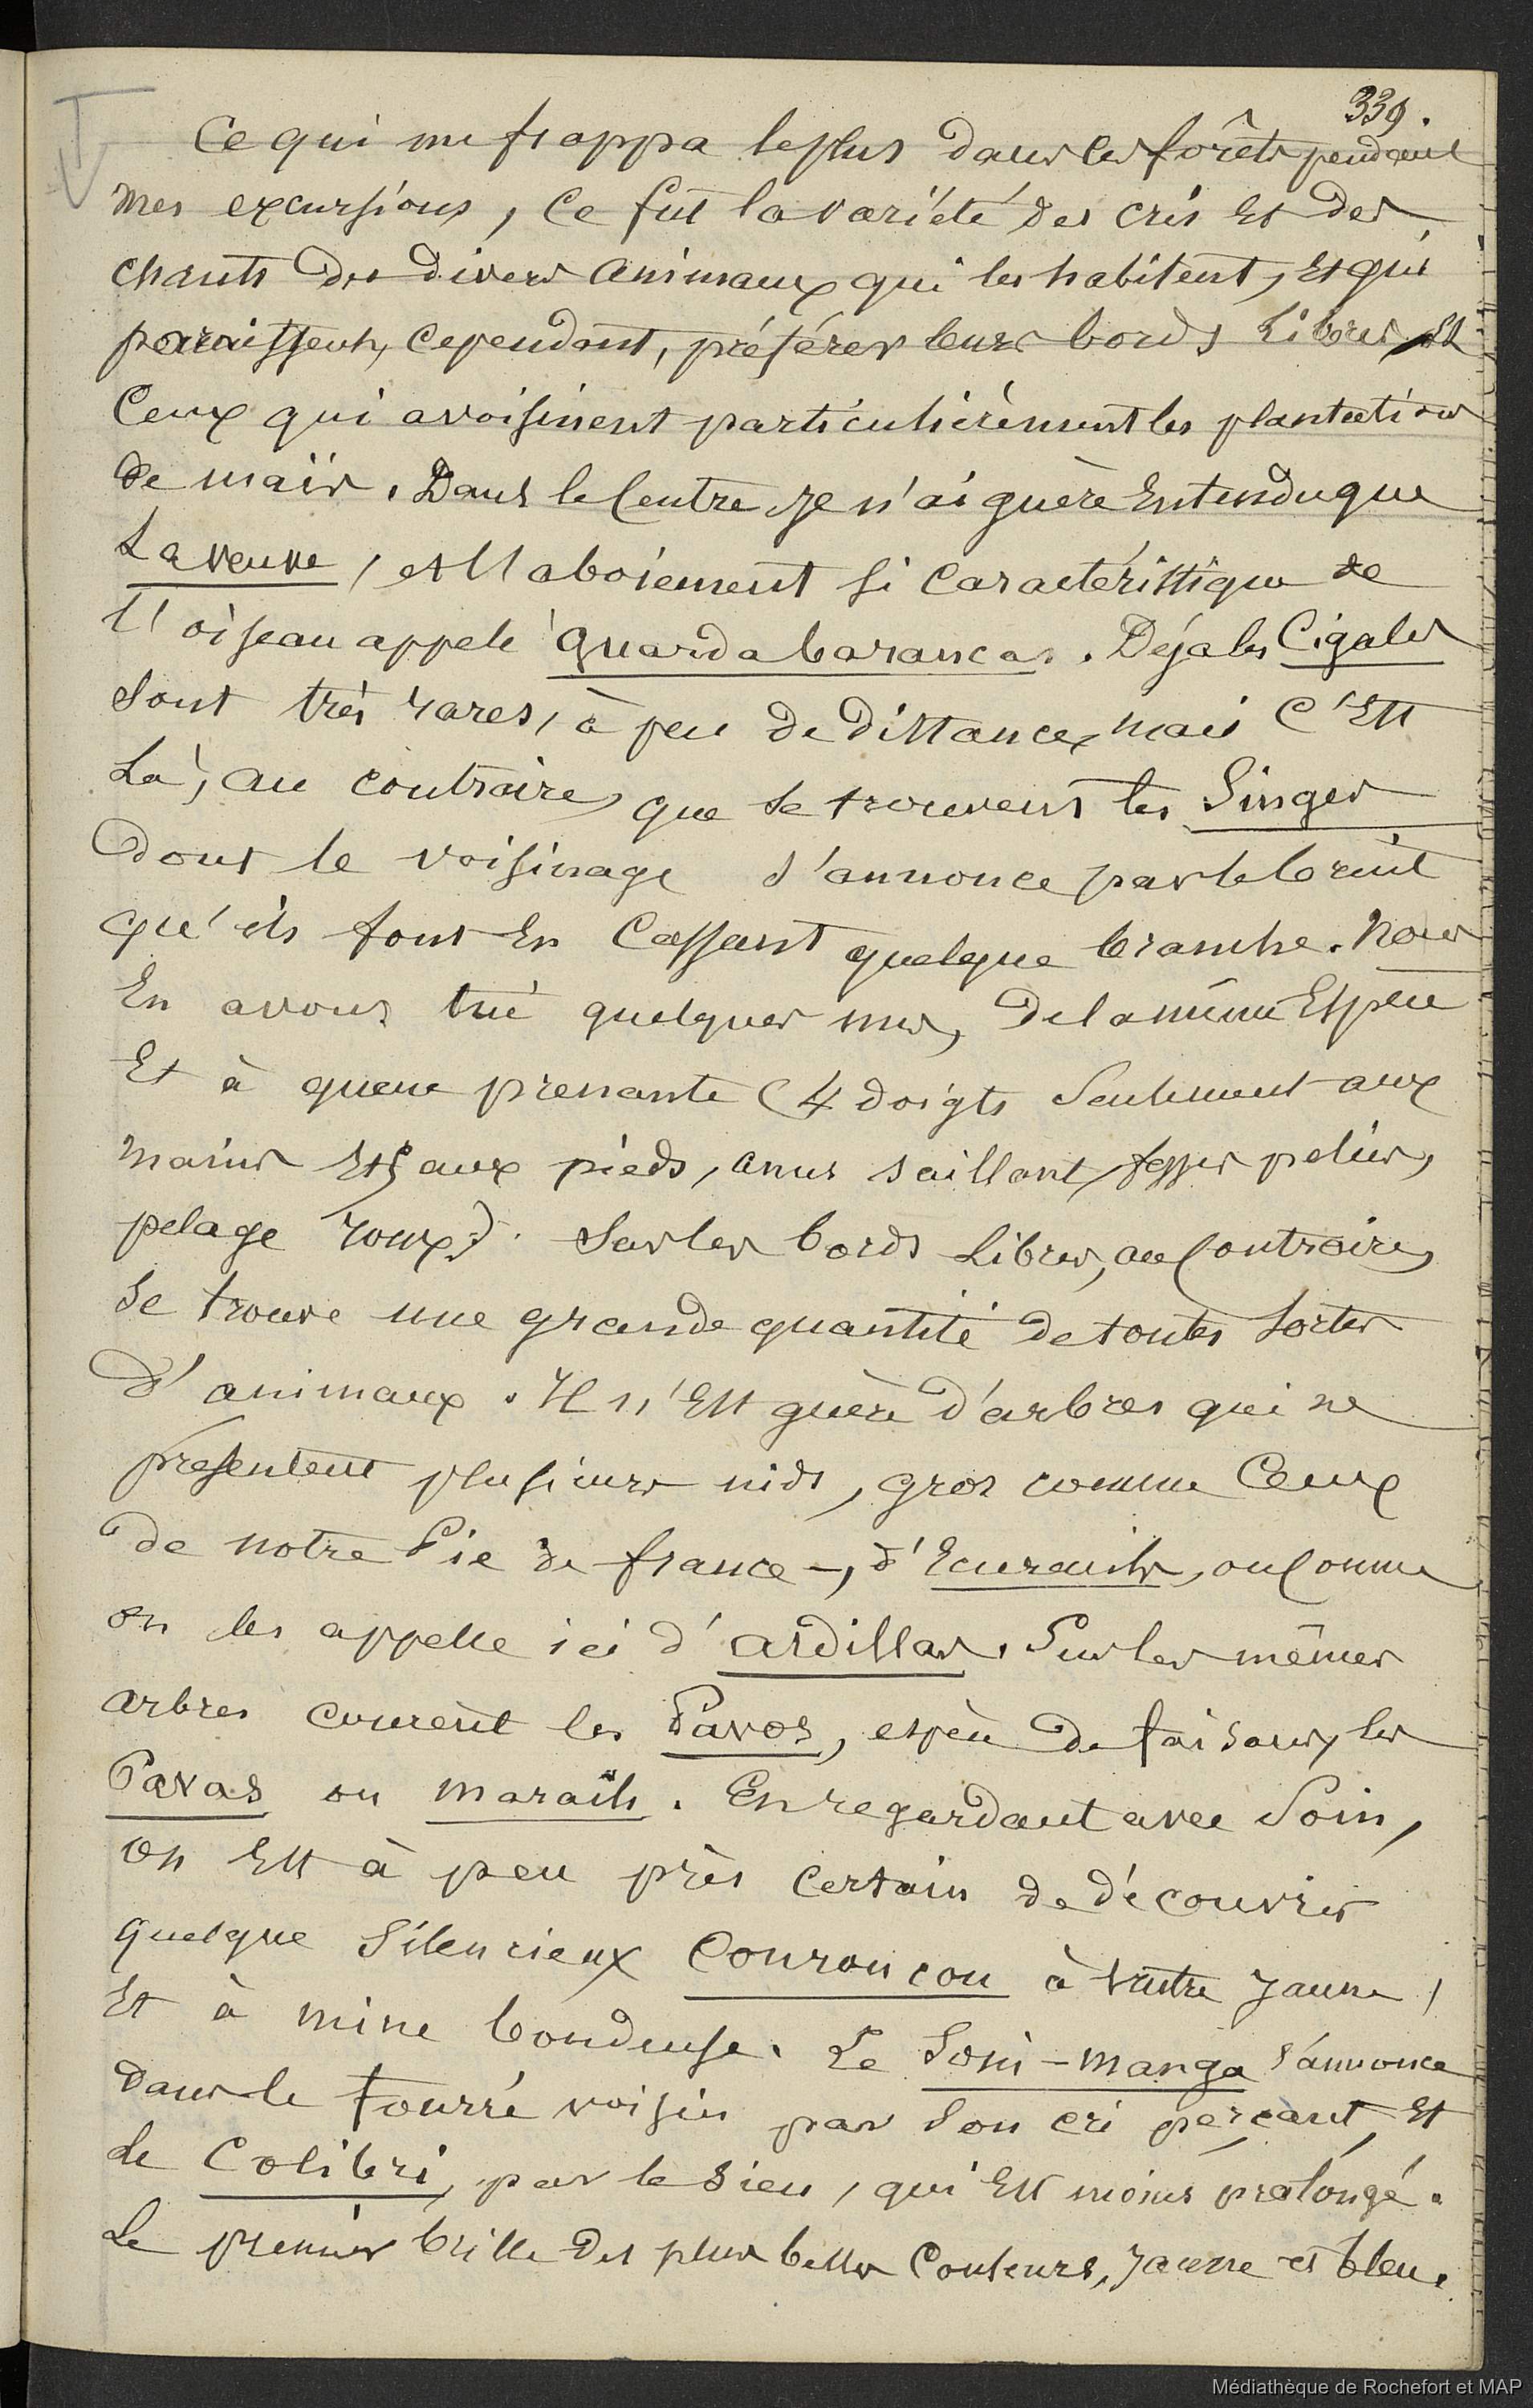 339.
Ce qui me frappa le plus dans les forêts pendant
mes excursions, ce fut la variété des cris et des
chants des divers animaux qui les habitent, et qui
paraissent, cependant, préférer leurs bords libres, et
ceux qui avoisinent particulièrement les plantations
de maïs. Dans le centre je n'ai guère entendu que
La veuve, et l'aboiement si caractéristique de
l'oiseau appelé guardabarancas. Déjà les Cigales
sont très rares, à peu de distance, mais c'est
là, au contraire, que se trouvent les Singes
dont le voisinage s'annonce par le bruit
qu'ils font en cassant quelque branche. Nous
en avons tué quelques uns, de la même espèce
et à queue prenante (4 doigts seulement aux
mains et 5 aux pieds, anus saillant, fesses pelées,
pelage roux). Sur les bords libres, au contraire,
se trouve une grande quantité de toutes sortes
d'animaux. Il n'est guère d'arbres qui ne
présentent plusieurs nids, gros comme ceux
de notre Pie de france -, d'Ecureuils, ou comme
on les appelle ici d'ardillas. Sur les mêmes
arbres courent les Pavos, espèce de faisans, les
Pavas ou maraïls. En regardant avec soin,
on est à peu près certain de découvrir
quelque silencieux Couroucou à ventre jaune,
et à mine boudeuse. Le Soui-manga s'annonce
dans le fourré voisin par son cri perçant, et
le Colibri, par le sien, qui est moins prolongé.
Le premier brille des plus belles couleurs, jaune et bleu.
Médiathèque de Rochefort et MAP